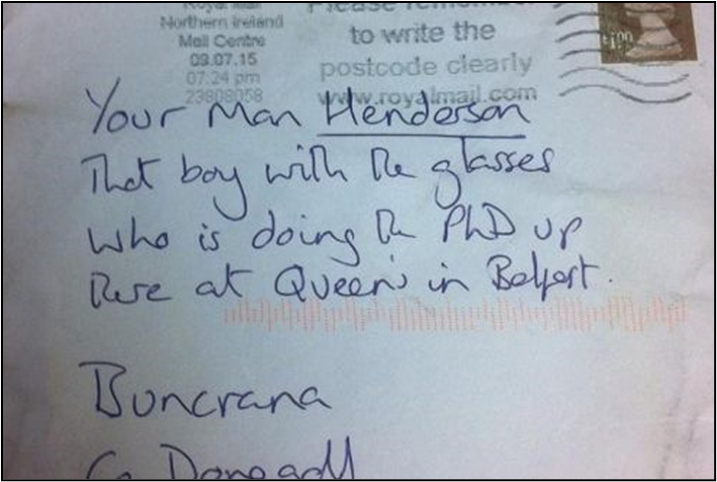 Royal Mail
Northern Ireland
Mail Centre
09.07.15
07:24 pm
23808058
Please remember
to write the
postcode clearly
www.royalmail.com
£1.00
Your Man Henderson
That boy with the glasses
who is doing the PhD up
there at Queen's in Belfast.
Buncrana
Co Donegall